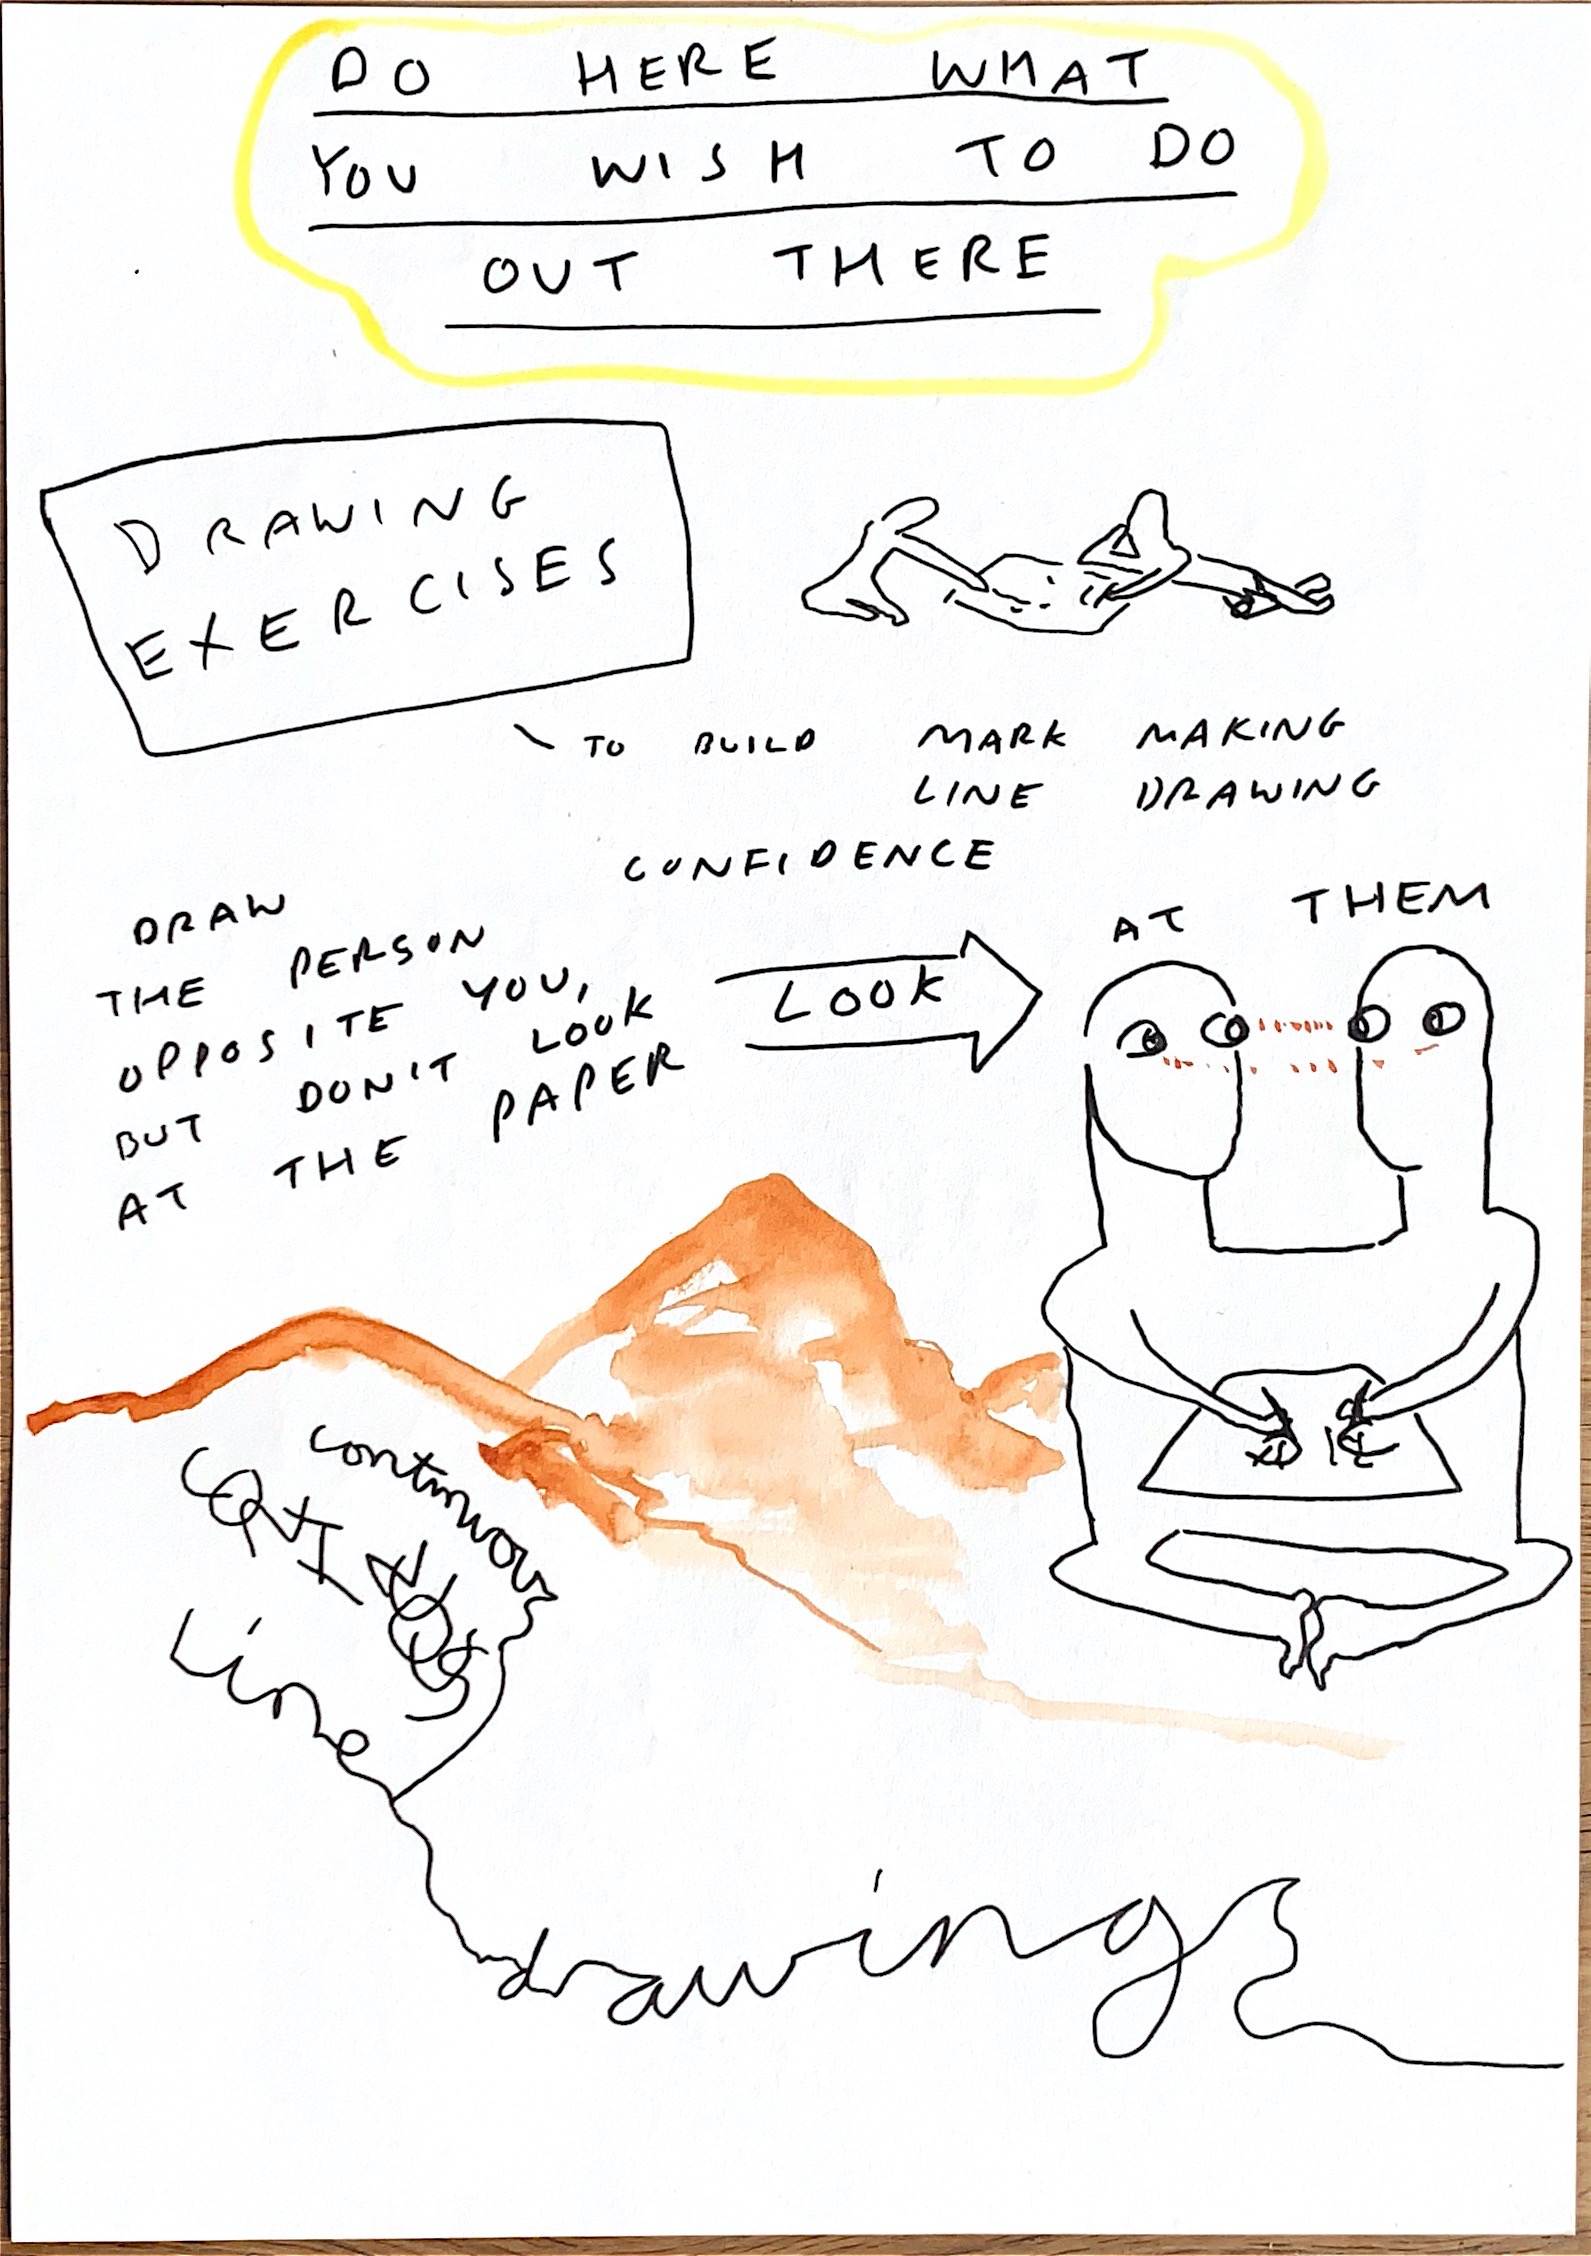 DO HERE WHAT
YOU WISH TO DO
OUT THERE
DRAWING
EXERCISES
TO BUILD MARK MAKING
LINE DRAWING
CONFIDENCE
DRAW
THE PERSON
OPPOSITE YOU,
BUT DON'T LOOK
AT THE PAPER
LOOK
AT THEM
continuous
Line
drawings